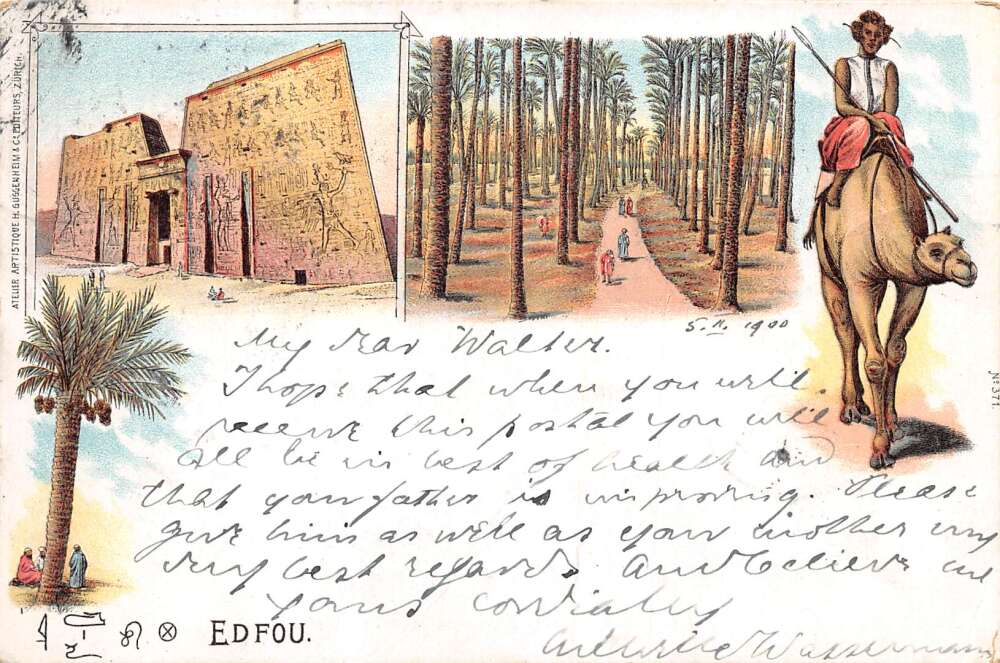 ATELIER ARTISTIQUE H. GUGGENHEIM & Co. EDITEURS, ZÜRICH.
No. 371.
5. II. 1900
My dear Walter.
I hope that when you will
receive this postal you will
all be in best of health and
that your father is improving. Please
give him as well as your mother my
very best regards. And believe me
yours cordially
Wassermann
EDFOU.